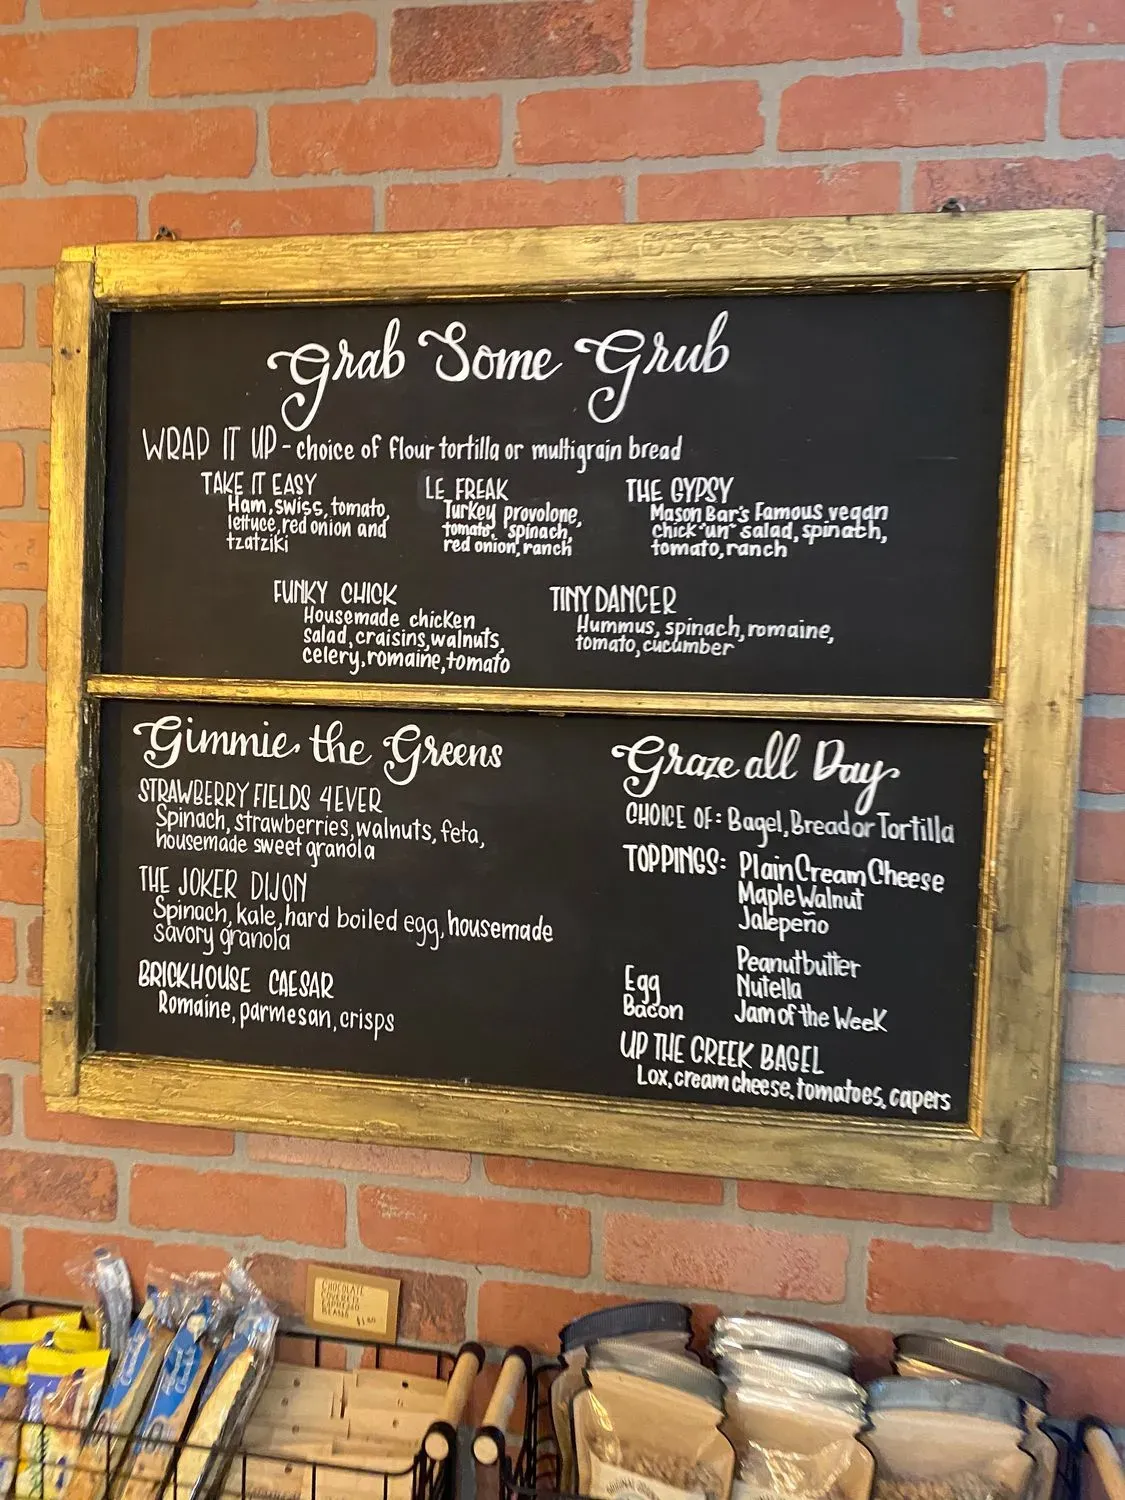 Grab Some Grub
WRAP IT UP - choice of flour tortilla or multigrain bread
TAKE IT EASY
Ham, swiss, tomato,
lettuce, red onion and
tzatziki
LE FREAK
Turkey provolone,
tomato, spinach,
red onion, ranch
THE GYPSY
Mason Bar's Famous vegan
chick "un" salad, spinach,
tomato, ranch
FUNKY CHICK
Housemade chicken
salad, craisins, walnuts,
celery, romaine, tomato
TINY DANCER
Hummus, spinach, romaine,
tomato, cucumber
Gimmie the Greens
STRAWBERRY FIELDS 4EVER
Spinach, strawberries, walnuts, feta,
housemade sweet granola
THE JOKER DIJON
Spinach, kale, hard boiled egg, housemade
savory granola
BRICKHOUSE CAESAR
Romaine, parmesan, crisps
Graze all Day
CHOICE OF: Bagel, Bread or Tortilla
TOPPINGS: Plain Cream Cheese
Maple Walnut
Jalepeño
Peanutbutter
Egg Nutella
Bacon Jam of the Week
UP THE CREEK BAGEL
Lox, cream cheese, tomatoes, capers
CHOCOLATE
COVERED
ESPRESSO
BEANS
ORIGINAL